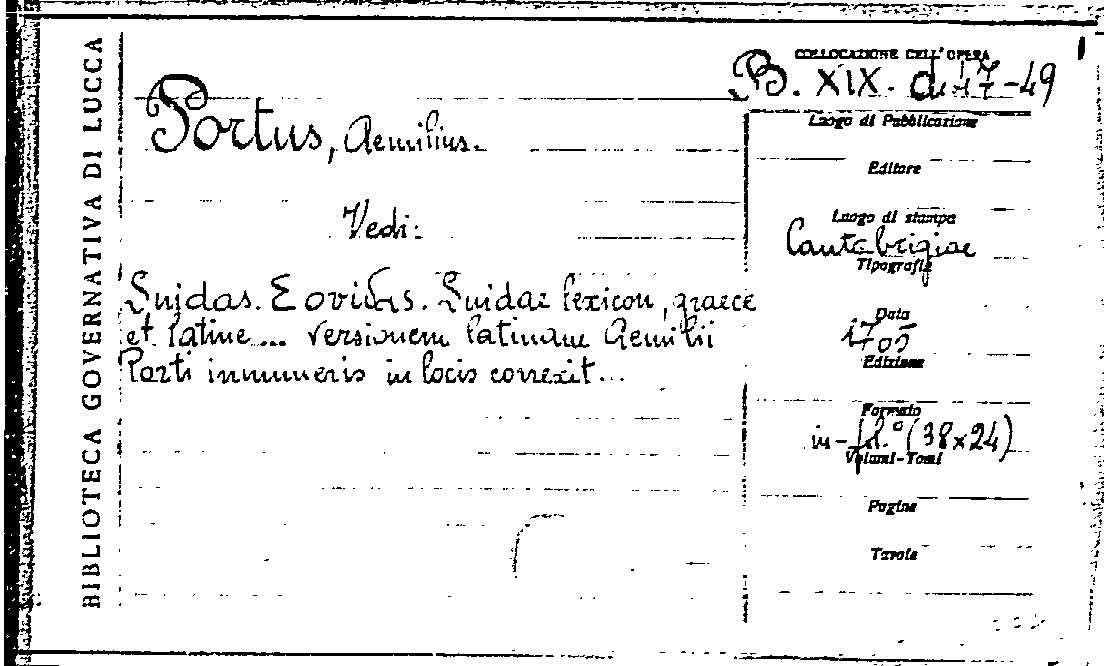 BIBLIOTECA GOVERNATIVA DI LUCCA
COLLOCAZIONE DELL'OPERA
B. XIX. d. 47-49
Portus, Aemilius.
Vedi:
Suidas. Σουίδας. Suidae lexicon, graece
et latine... versionem latinam Aemilii
Porti innumeris in locis correxit...
Luogo di Pubblicazione
Editore
Luogo di stampa
Cantabrigiae
Tipografia
Data
1705
Edizione
Formato
in-fol.° (38x24)
Volumi-Tomi
Pagine
Tavole